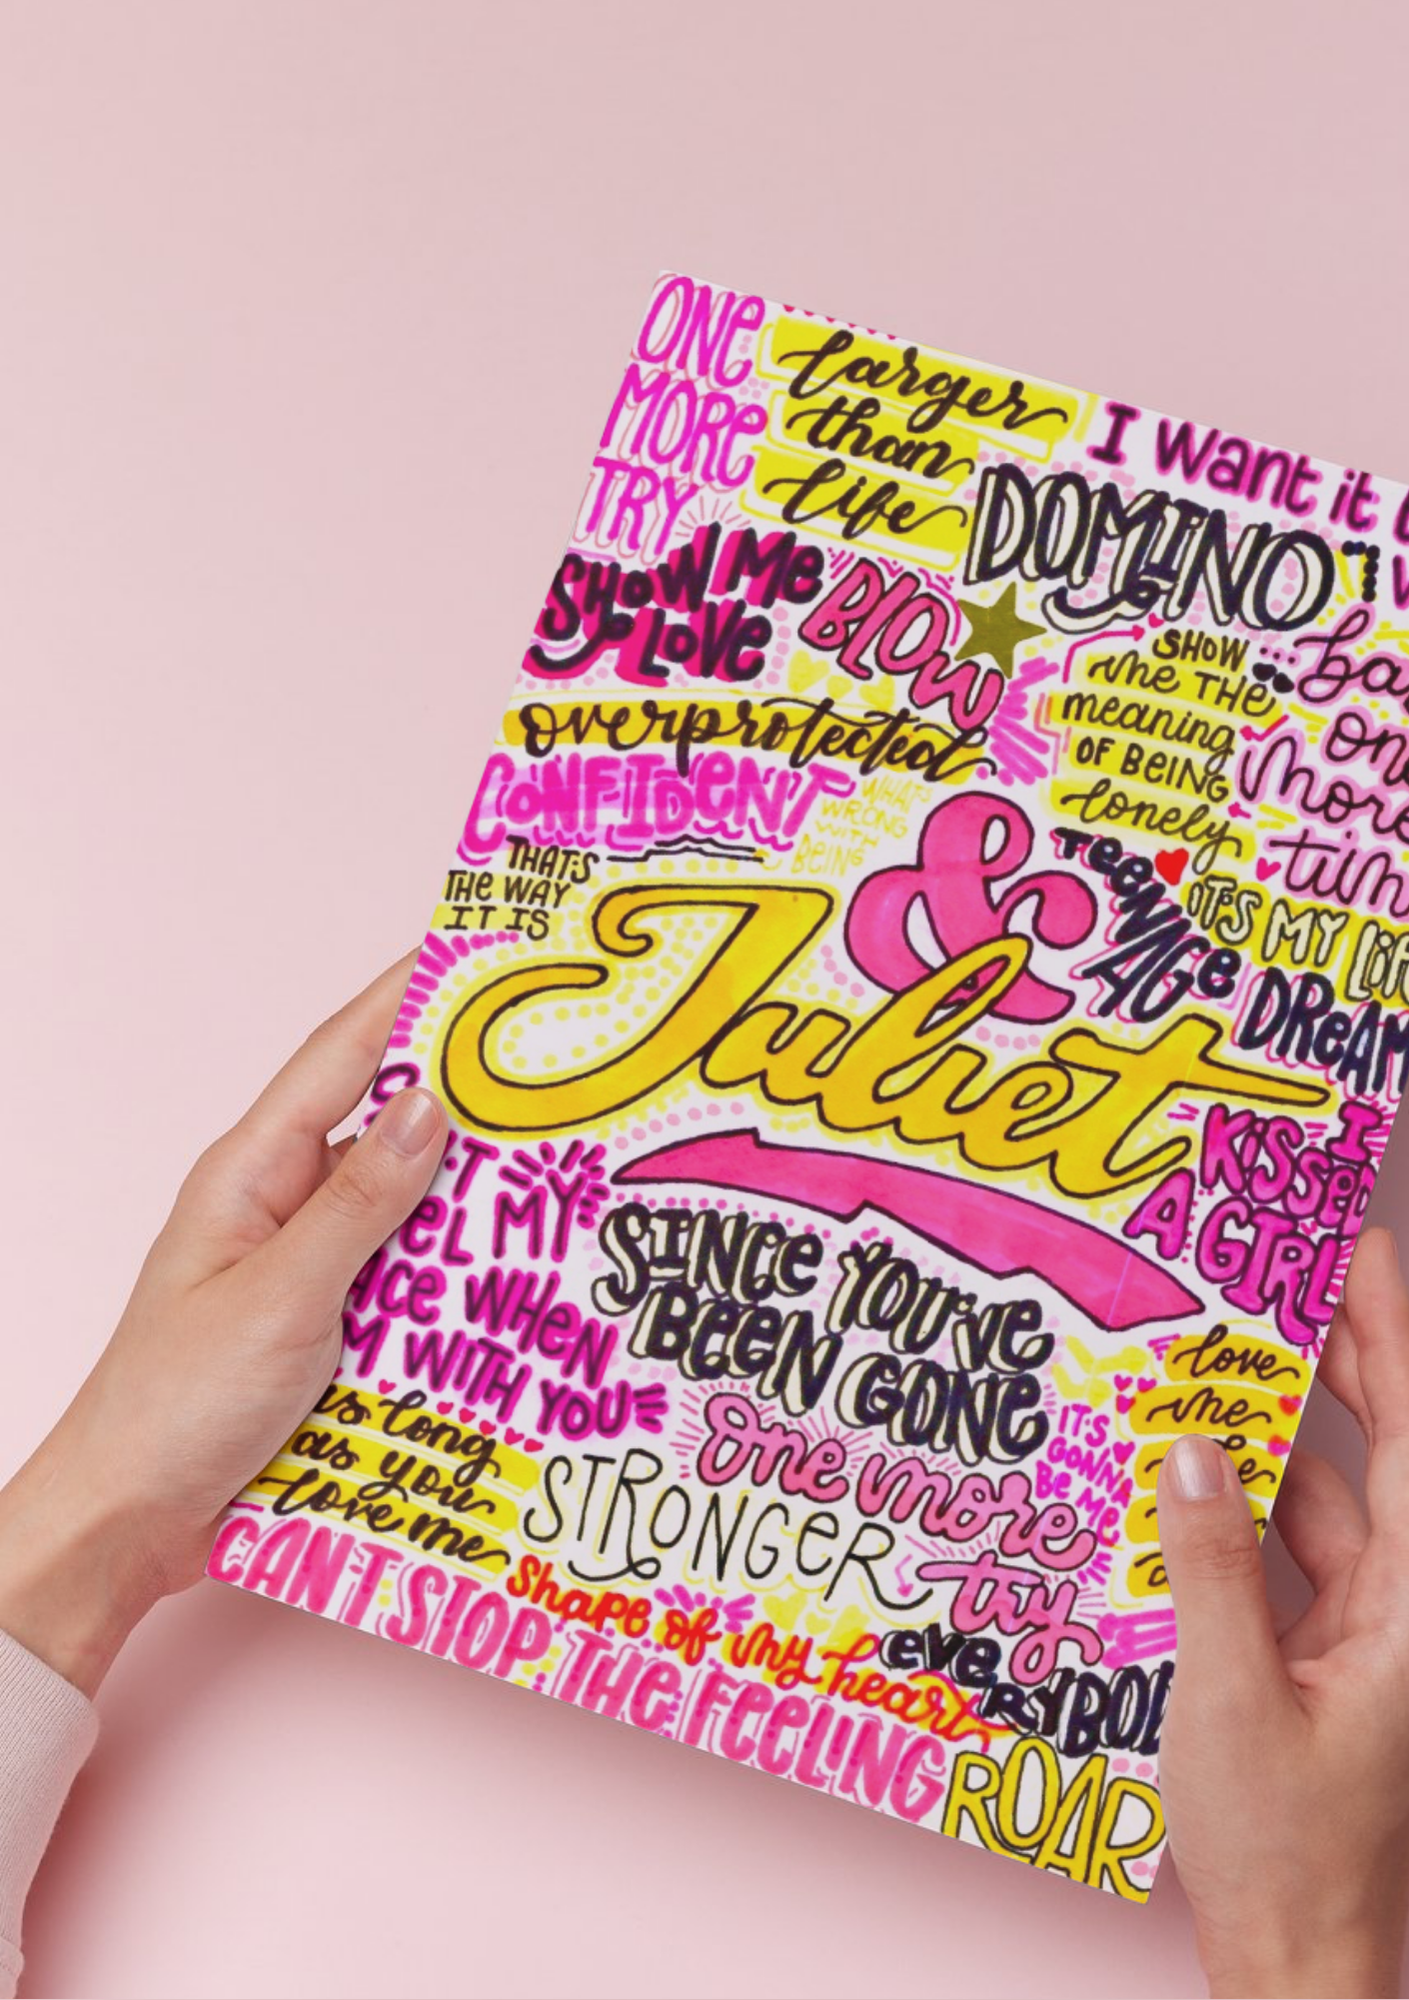 ONE
MORE
TRY
larger
than
life
I want it
DOMINO
SHOW ME
LOVE
BLOW
SHOW
me THE
meaning
OF BEING
lonely
one
more
overprotected
CONFIDENT
WHAT'S
WRONG
WITH
BEING
THAT'S
THE WAY
IT IS
&
Juliet
TEENAGE
DREAM
IT'S MY
I
KISSED
A GIRL
MY
WHEN
WITH YOU
SINCE YOU'VE
BEEN GONE
love
me
IT'S
GONNA
Be Me
as long
as you
love me
STRONGER
one more
try
CAN'T STOP THE FEELING
shape of my heart
ROAR